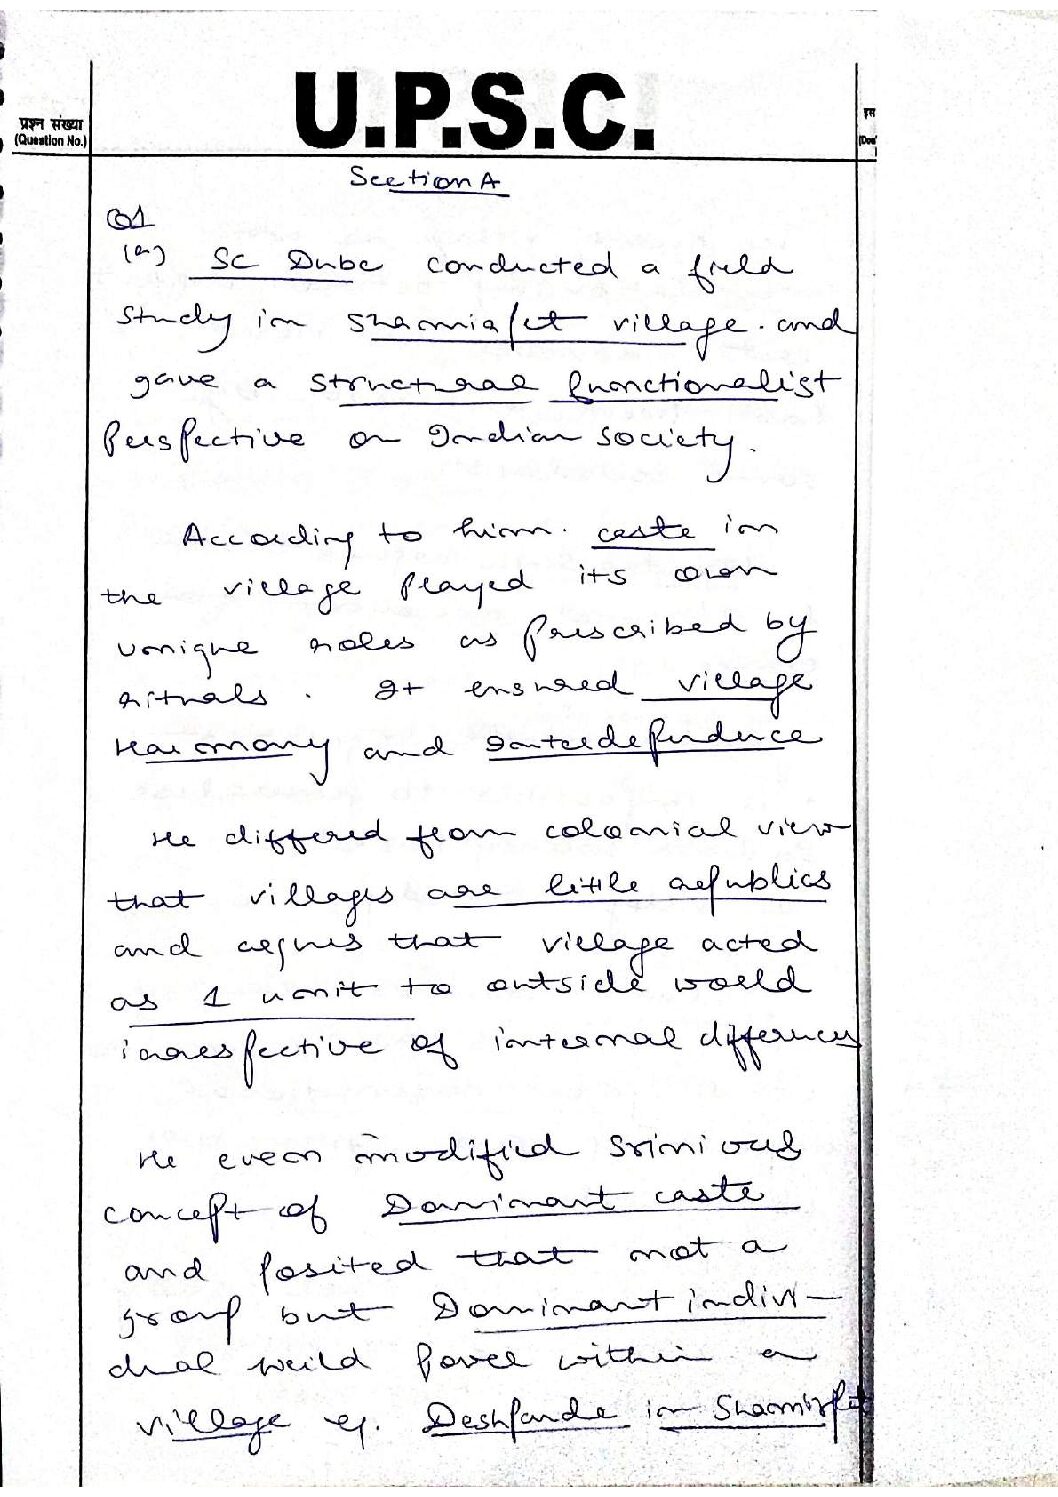 U.P.S.C.
प्रश्न संख्या
(Question No.)
इस
Section A
Q1
(a) SC Dube conducted a field
study in Shamirpet village. and
gave a structural functionalist
perspective on Indian society.
According to him. caste in
the village played its own
unique roles as prescribed by
rituals. It ensured village
Harmony and Interdependence
He differed from colonial view
that villages are little republics
and argues that village acted
as 1 unit to outside world
irrespective of internal differences
He even modified Srinivas
concept of Dominant caste
and posited that not a
group but Dominant indivi-
dual weild power within a
village eg. Deshpande in Shamirpet